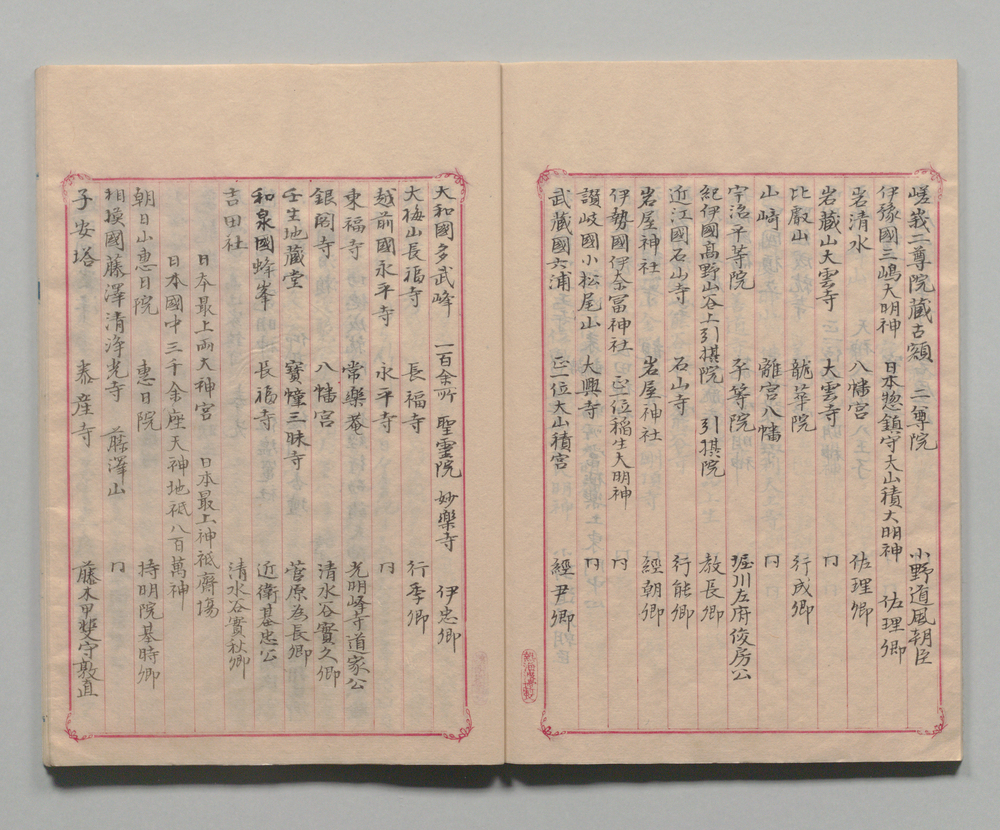 嵯峩二尊院蔵古額 二尊院 小野道風朝臣
伊豫國三嶋大明神 日本惣鎮守大山積大明神 佐理卿
岩清水 八幡宮 佐理卿
岩蔵山大雲寺 大雲寺 同
比叡山 龍華院 行成卿
山崎 離宮八幡 同
宇治平等院 平等院 堀川左府俊房公
紀伊國高野山谷上引摂院 引摂院 教長卿
近江國石山寺 石山寺 行能卿
岩屋神社 岩屋神社 經朝卿
伊勢國伊奈冨神社 正一位稲生大明神 同
讃岐國小松尾山 大興寺 同
武蔵國六浦 正一位大山積宮 經尹卿
大和國多武峰 一百余所 聖霊院 妙樂寺 伊忠卿
大梅山長福寺 長福寺 行季卿
越前國永平寺 永平寺 同
東福寺 常樂菴 光明峰寺道家公
銀閣寺 八幡宮 清水谷實久卿
壬生地蔵堂 寳幢三昧寺 菅原為長卿
和泉國蜂峯 長福寺 近衛基忠公
吉田社 清水谷實秋卿
日本最上両大神宮 日本最上神祗齋場
日本國中三千余座天神地祗八百萬神
朝日山惠日院 惠日院 持明院基時卿
相摸國藤澤清浄光寺 藤澤山 同
子安塔 泰産寺 藤木甲斐守敦直